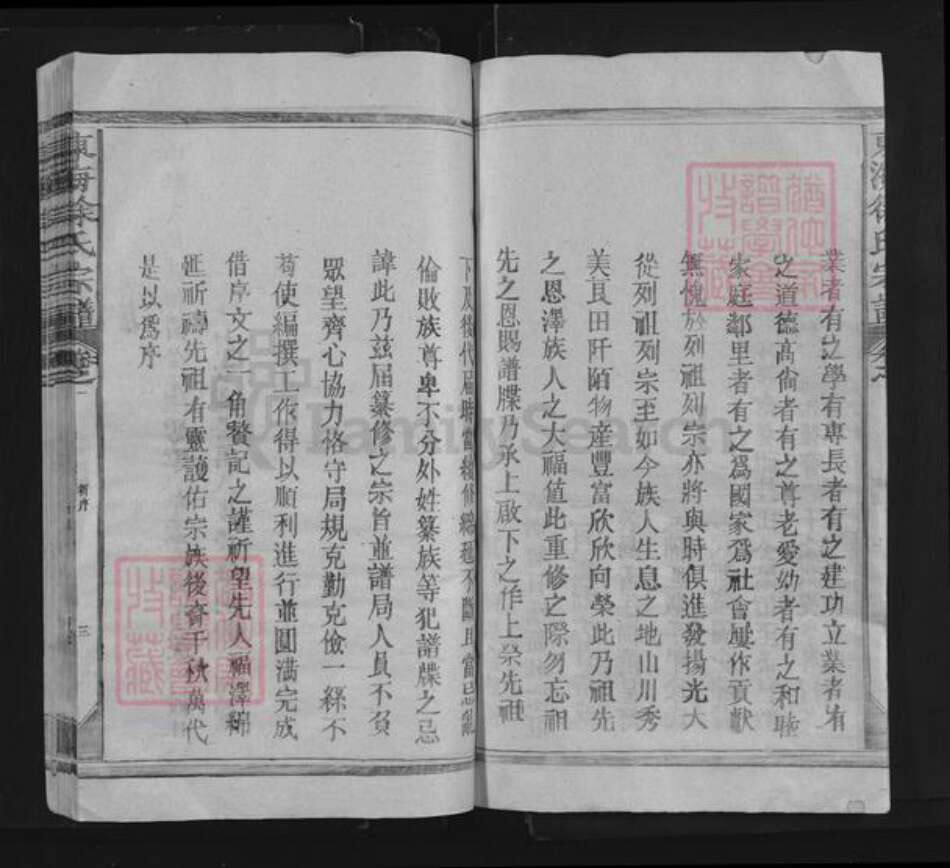 業者有之學有專長者有之建功立業者有
之道德高尙者有之尊老愛幼者有之和睦
家庭鄰里者有之爲國家爲社會屢作貢獻
無愧於列祖列宗亦將與時俱進發揚光大
從列祖列宗至如今族人生息之地山川秀
美良田阡陌物産豐富欣欣向榮此乃祖先
之恩澤族人之大福值此重修之際勿忘祖
先之恩賜譜牒乃承上啟下之作上祭先祖
下及後代
倫敗族尊卑不分外姓纂族等犯譜牒之忌
諱此乃茲届纂修之宗旨並譜局人員不負
眾望齊心協力恪守局規克勤克儉一絲不
苟使編撰工作得以順利進行並圓滿完成
借序文之一角餐記之謹祈望先人福澤綿
恆祈禱先祖有靈護佑宗族後裔千秋萬代
是以爲序
東海徐氏宗譜
卷之一
新序
三
東海徐氏宗譜
譜學書
特藏
特藏
FamilySearch